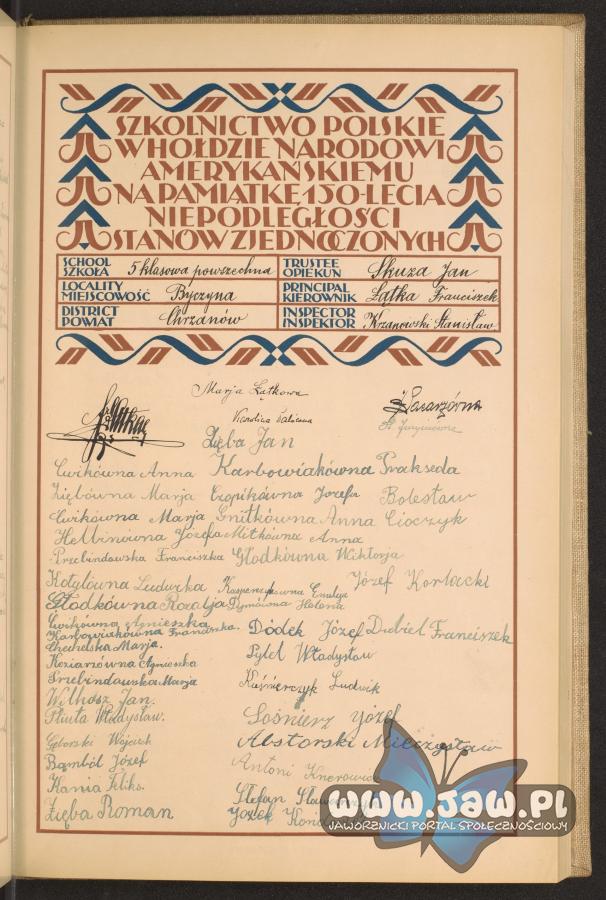 SZKOLNICTWO POLSKIE
W HOŁDZIE NARODOWI
AMERYKAŃSKIEMU
NA PAMIĄTKĘ 150-LECIA
NIEPODLEGŁOŚCI
STANÓW ZJEDNOCZONYCH
SCHOOL SZKOŁA 5 klasowa powszechna TRUSTEE OPIEKUN Skuza Jan
LOCALITY MIEJSCOWOŚĆ Byczyna PRINCIPAL KIEROWNIK Łątka Franciszek
DISTRICT POWIAT Chrzanów INSPECTOR INSPEKTOR Krzanowski Stanisław
Marja Łątkowa
Zięba Jan
Ćwikówna Anna Karbowiakówna Prakseda
Ziębówna Marja Czopikówna Józefa Bolesław
Ćwikówna Marja Gnitkówna Anna Cioczyk
Helbinówna Józefa Mitkówna Anna
Przebindowska Franciszka Głodkówna Wiktorja
Kotylówna Ludwika Kasperczykówna Emilja Józef Korbacki
Głodkówna Rozalja Dymówna Helena
Ćwikówna Agnieszka
Karbowiakówna Franciszka. Dódek Józef Dubiel Franciszek
Chechelska Marja.
Koziarzówna Agnieszka Pytel Władysław
Przebindowska Marja Kuśnierczyk Ludwik
Wilkosz Jan.
Pluta Władysław. Sośnierz Józef
Gęborski Wojciech Abstorski Mieczysław
Bąmból Józef Antoni
Kania Feliks. Stefan
Zięba Roman Józek
www.JAW.PL
JAWORZNICKI PORTAL SPOŁECZNOŚCIOWY